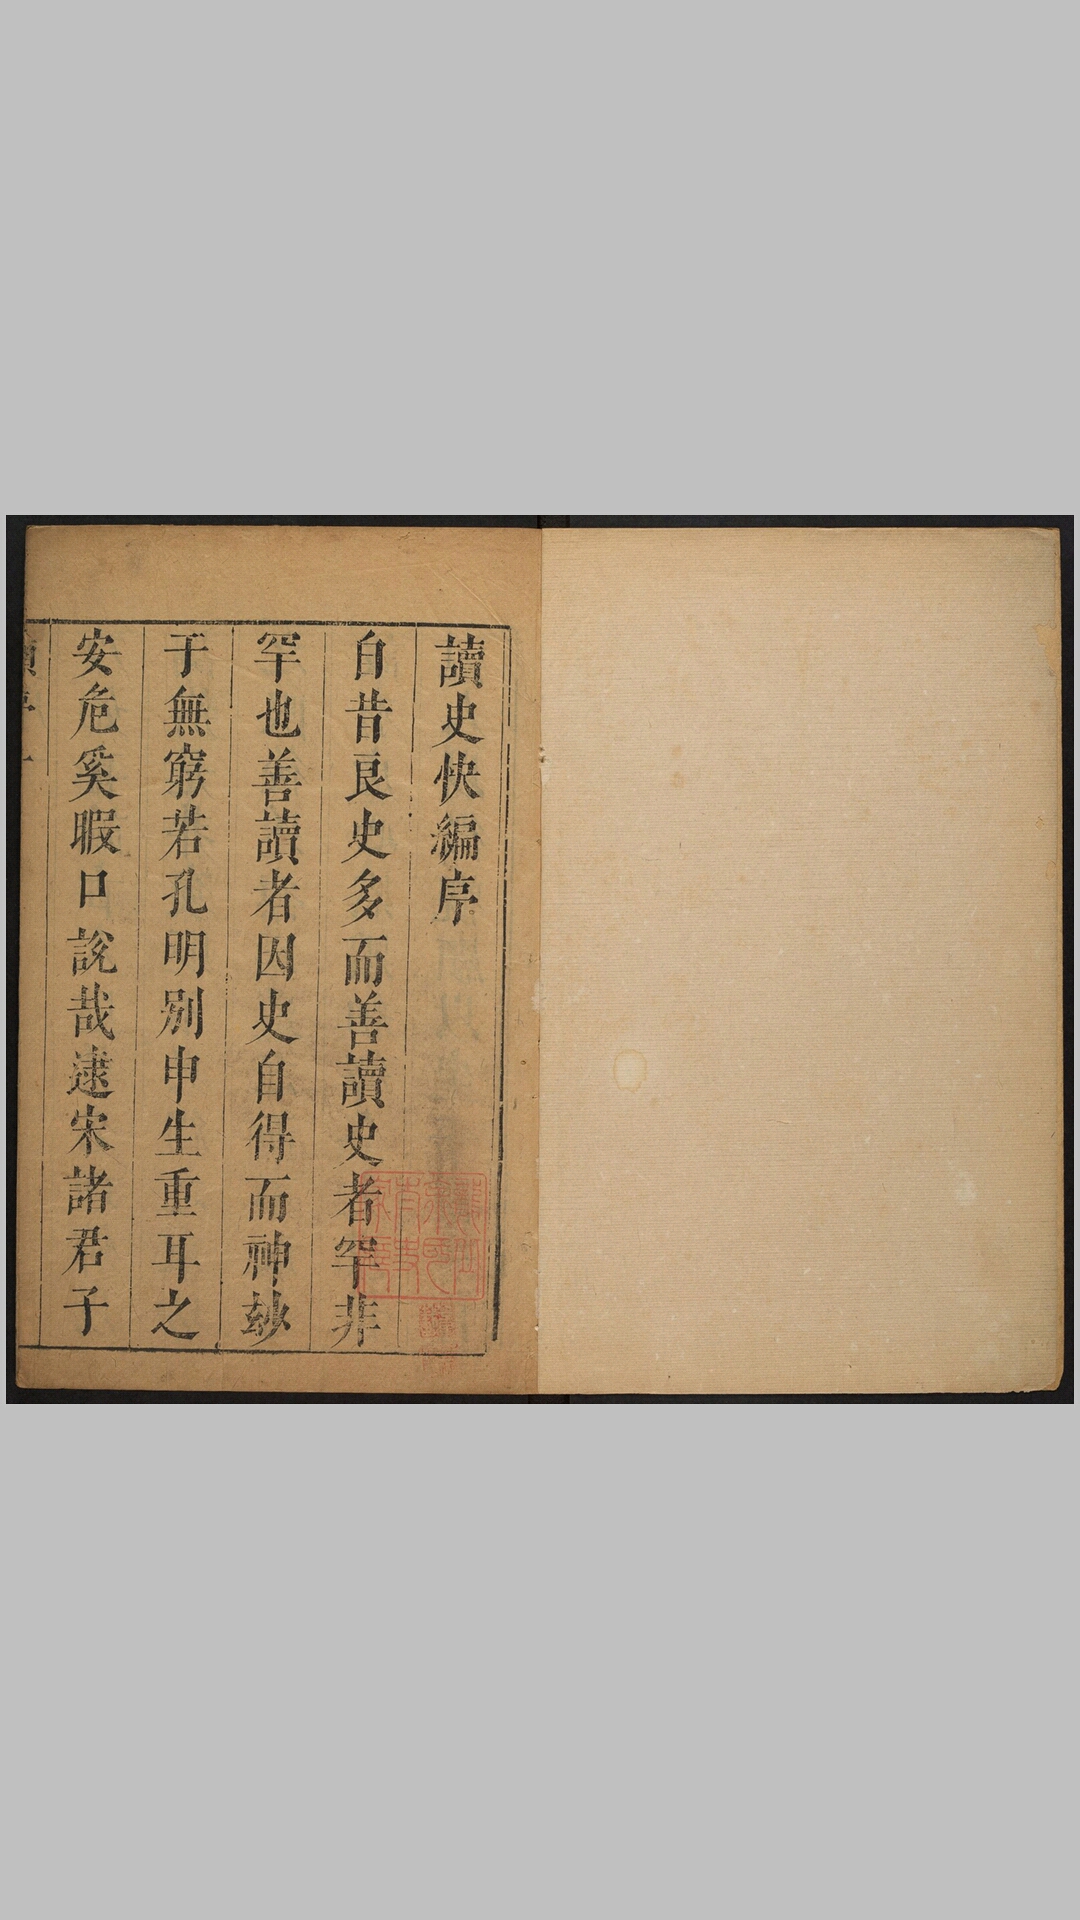 讀史快編序
自昔良史多而善讀史者罕非
罕也善讀者因史自得而神玅
于無窮若孔明別申生重耳之
安危奚暇口說哉逮宋諸君子